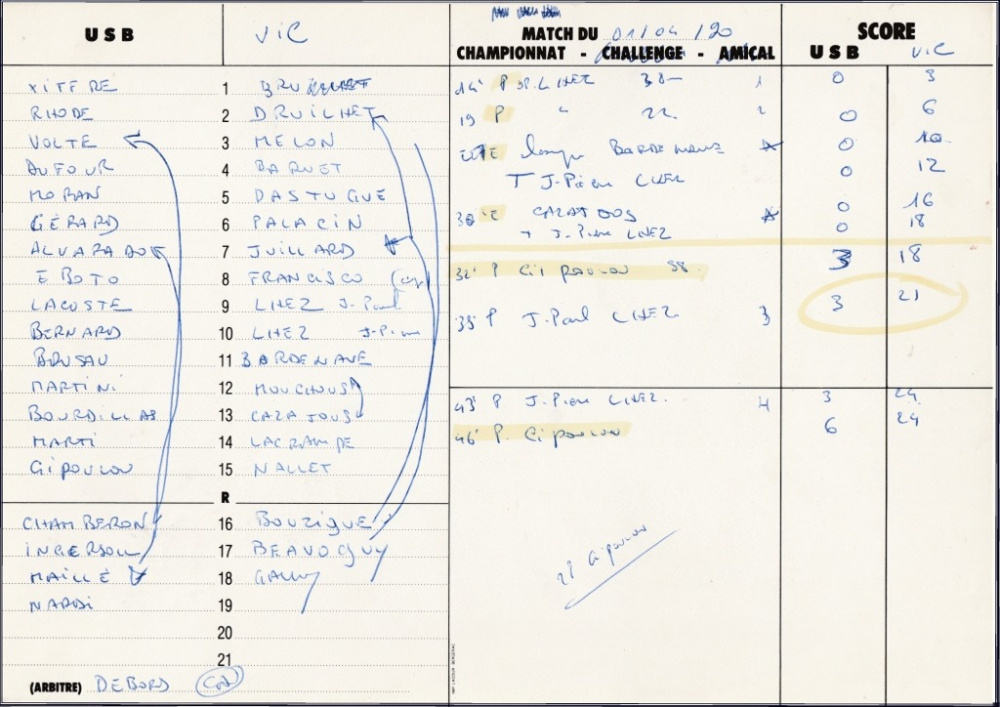 USB VIC MATCH DU 01/04/90 SCORE
CHAMPIONNAT - CHALLENGE - AMICAL USB VIC
1
RHODE 2 DRUILHET
VOLTE 3 MELON
DUFOUR 4 BARUET
MORAN 5 DASTUGUE
GÉRARD 6 PALACIN
ALVARADO 7 JUILLARD
EBOTO 8 FRANCISCO (cap
LACOSTE 9 LHEZ J-Paul
BERNARD 10 LHEZ J-Pierre
BRUSAU 11 BARDENAVE
MARTINI 12 MOUCHOUS
13 CAZAJOUS
MARTI 14 LACRAMPE
GIPOULOU 15 NALLET
R
CHAMBERON 16 BOUZIGUE
INGERSOLL 17
MAILLÉ 18
NARDI 19
20
21
(ARBITRE) DEBORD
14' P JP. LHEZ 38- 1 0 3
19 P " 22 " 0 6
BARDENAVE 0 10
T J-Pierre LHEZ 0 12
30'E CAZAJOUS 0 16
T J-Pierre LHEZ 0 18
32' P Gipoulou 38. 3 18
35' P J-Paul LHEZ 3 3 21
43' P J-Pierre LHEZ. 4 3 24
46' P. Gipoulou 6 24
Gipoulou